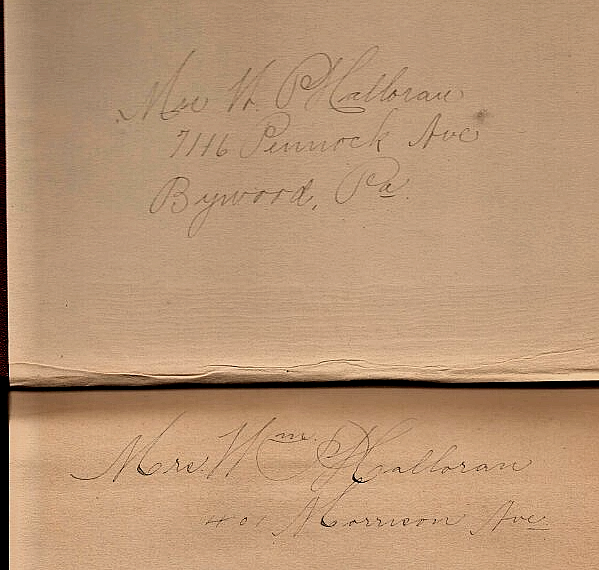 Mrs W. P Halloran
7116 Pennock Ave
Bywood, Pa.
Mrs. Wm. P Halloran
401 Morrison Ave.